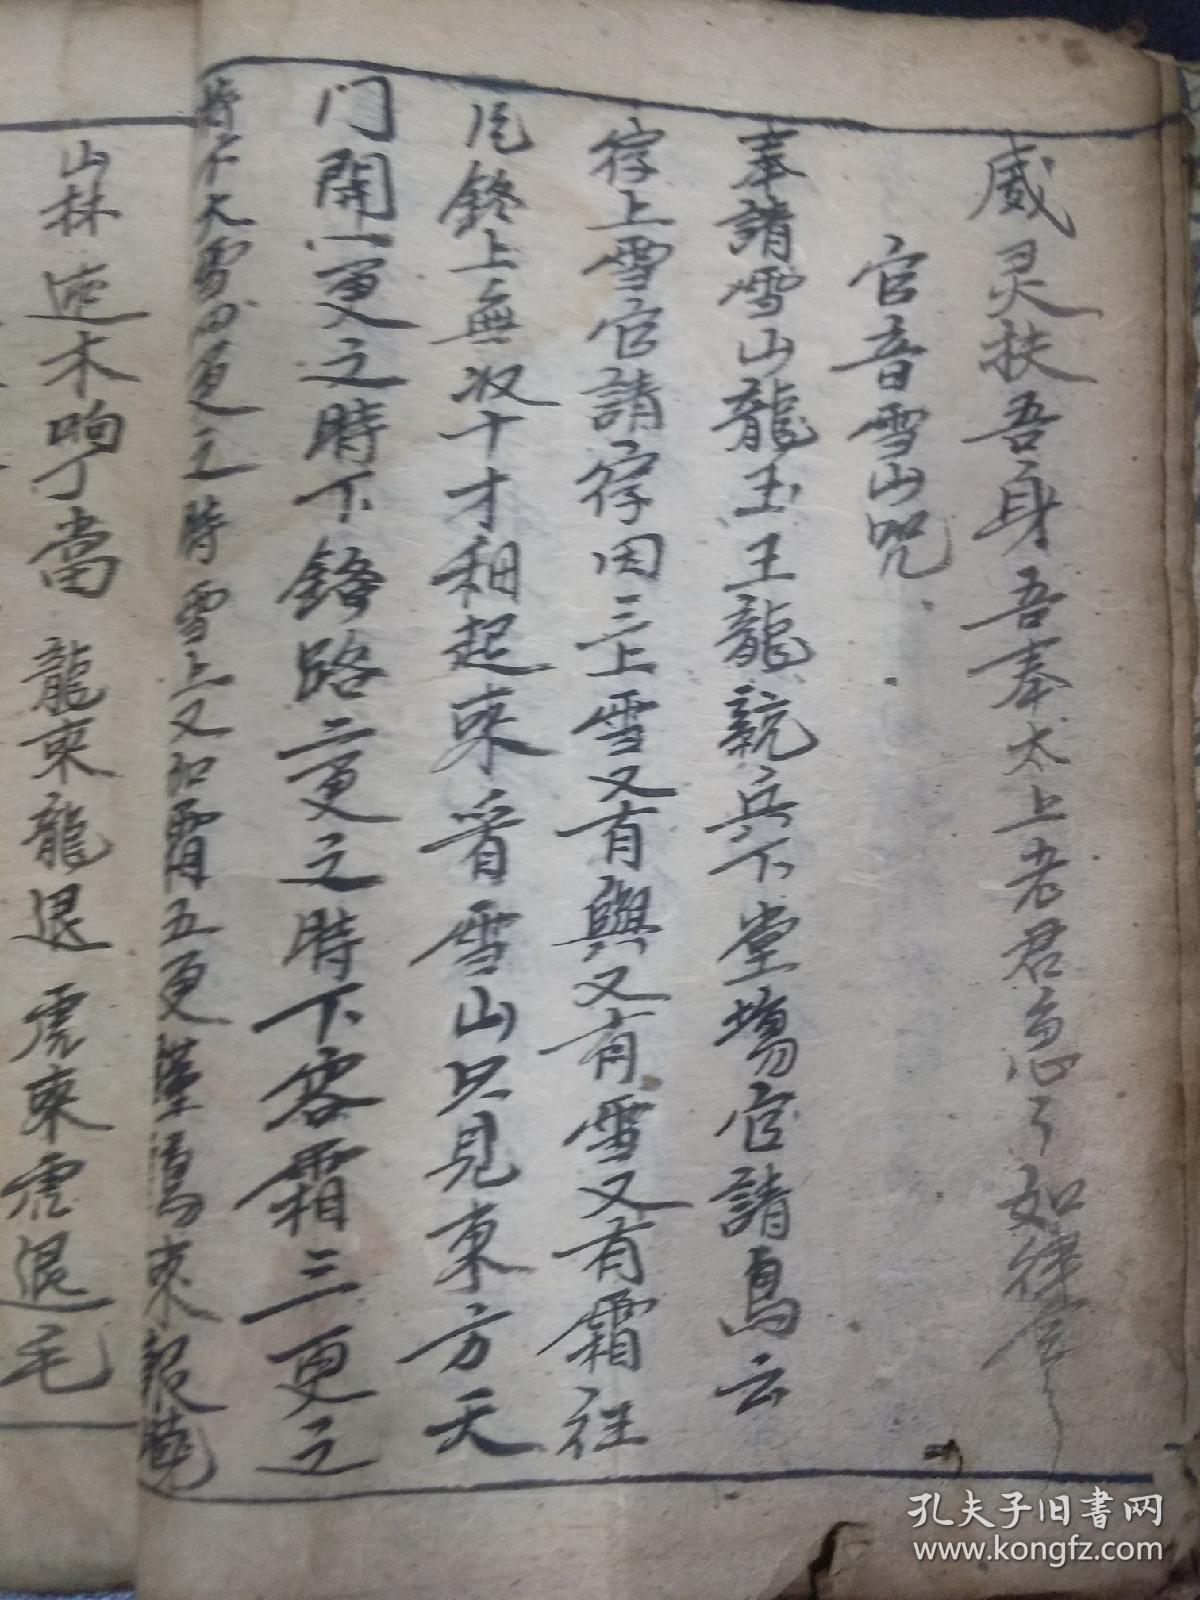 威灵扶吾身吾奉太上老君急了如律令
官音雪山咒
奉請雪山龍玉王龍親兵下堂場官請鳥云
上雪官請因三上雪又有與又有雪又有霜往
上無收十才相起來看雪山只見東方天
门開一更之時下路二更之時下容霜三更之
時下大雪四更之時雪上又加霜五更鳥來報
山林木响丁當 龍來龍退 虎來虎退毛
孔夫子旧书网
www.kongfz.com